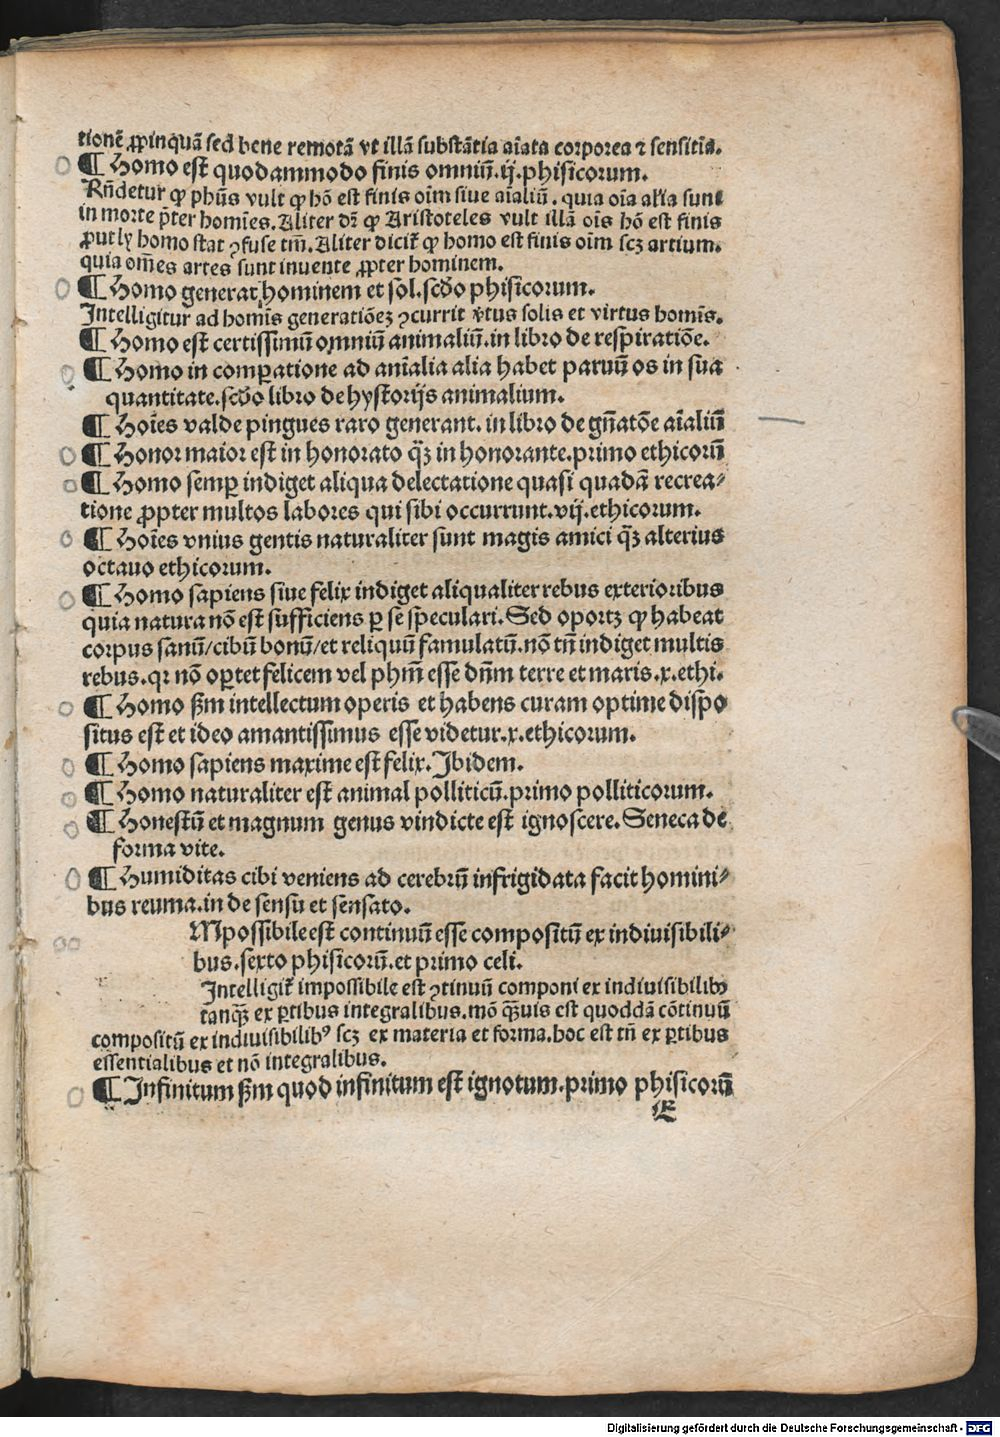 tionē ꝓpinquā sed bene remotā vt illā substātia aīata corporea ⁊ sensitīa.
¶ Homo est quodammodo finis omniū.ij.phisicorum.
Rn̄detur ꝙ phūs vult ꝙ hō est finis oīm siue aīaliū. quia oīa alīa sunt
in morte p̄ter homīes. Aliter dr̄ ꝙ Aristoteles vult illā oīs hō est finis
ꝓut ly homo stat ꝯfuse tm̄. Aliter dicit̄ ꝙ homo est finis oīm scꝫ artium.
quia om̄es artes sunt inuente ꝓpter hominem.
¶ Homo generat hominem et sol.scd̄o phisicorum.
Intelligitur ad homīs generatiōeꝫ ꝯcurrit v̄tus solis et virtus homīs.
¶ Homo est certissimū omniū animaliū.in libro de respiratiōe.
¶ Homo in comꝑatione ad anīalia alia habet paruū os in sua
quantitate.scd̄o libro de hystorijs animalium.
¶ Hoīes valde pingues raro generant. in libro de gn̄atōe aīaliū
¶ Honor maior est in honorato q̄ꝫ in honorante.primo ethicorū
¶ Homo semꝑ indiget aliqua delectatione quasi quadā recrea⸗
tione ꝓpter multos labores qui sibi occurrunt.vij.ethicorum.
¶ Hoīes vnius gentis naturaliter sunt magis amici q̄ꝫ alterius
octauo ethicorum.
¶ Homo sapiens siue felix indiget aliqualiter rebus exterioribus
quia natura nō est sufficiens ꝑ se speculari. Sed oportꝫ ꝙ habeat
corpus sanū/cibū bonū/et reliquū famulatū.nō tn̄ indiget multis
rebus.qꝛ nō oꝑtet felicem vel phm̄ esse dn̄m terre et maris.x.ethi.
¶ Homo ẜm intellectum operis et habens curam optime dispo
situs est et ideo amantissimus esse videtur.x.ethicorum.
¶ Homo sapiens maxime est felix. Ibidem.
¶ Homo naturaliter est animal polliticū.primo polliticorum.
¶ Honestū et magnum genus vindicte est ignoscere. Seneca de
forma vite.
¶ Humiditas cibi veniens ad cerebrū infrigidata facit homini⸗
bus reuma.in de sensu et sensato.
Mpossibile est continuū esse compositū ex indiuisibili⸗
bus.sexto phisicorū.et primo celi.
Intelligit̄ impossibile est ꝯtinuū componi ex indiuisibilibꝰ
tanq̄ꝫ ex ꝑtibus integralibus.mō q̄ꝫuis est quoddā cōtinuū
compositū ex indiuisibilibꝰ scꝫ ex materia et forma.hoc est tn̄ ex ꝑtibus
essentialibus et nō integralibus.
¶ Infinitum ẜm quod infinitum est ignotum.primo phisicorū
E
Digitalisierung gefördert durch die Deutsche Forschungsgemeinschaft - DFG